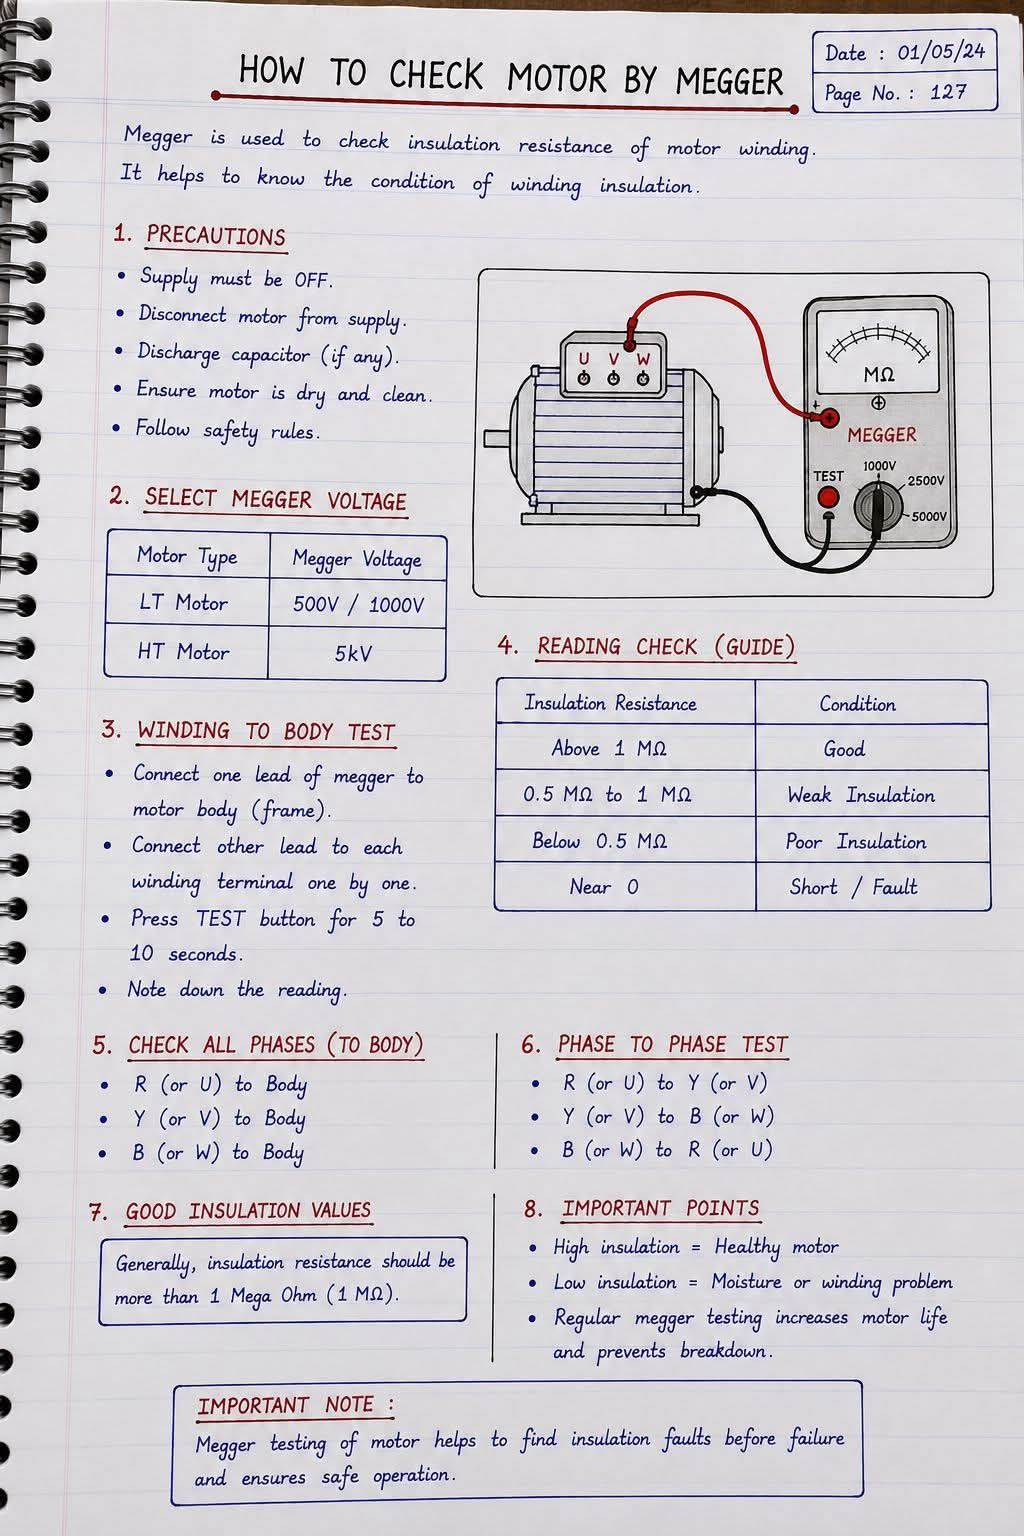 HOW TO CHECK MOTOR BY MEGGER
Date : 01/05/24
Page No. : 127
Megger is used to check insulation resistance of motor winding.
It helps to know the condition of winding insulation.
1. PRECAUTIONS
• Supply must be OFF.
• Disconnect motor from supply.
• Discharge capacitor (if any).
• Ensure motor is dry and clean.
• Follow safety rules.
U V W
MΩ
+
MEGGER
TEST
1000V
2500V
5000V
2. SELECT MEGGER VOLTAGE
Motor Type Megger Voltage
LT Motor 500V / 1000V
HT Motor 5kV
3. WINDING TO BODY TEST
• Connect one lead of megger to
motor body (frame).
• Connect other lead to each
winding terminal one by one.
• Press TEST button for 5 to
10 seconds.
• Note down the reading.
4. READING CHECK (GUIDE)
Insulation Resistance Condition
Above 1 MΩ Good
0.5 MΩ to 1 MΩ Weak Insulation
Below 0.5 MΩ Poor Insulation
Near 0 Short / Fault
5. CHECK ALL PHASES (TO BODY)
• R (or U) to Body
• Y (or V) to Body
• B (or W) to Body
6. PHASE TO PHASE TEST
• R (or U) to Y (or V)
• Y (or V) to B (or W)
• B (or W) to R (or U)
7. GOOD INSULATION VALUES
Generally, insulation resistance should be
more than 1 Mega Ohm (1 MΩ).
8. IMPORTANT POINTS
• High insulation = Healthy motor
• Low insulation = Moisture or winding problem
• Regular megger testing increases motor life
and prevents breakdown.
IMPORTANT NOTE :
Megger testing of motor helps to find insulation faults before failure
and ensures safe operation.